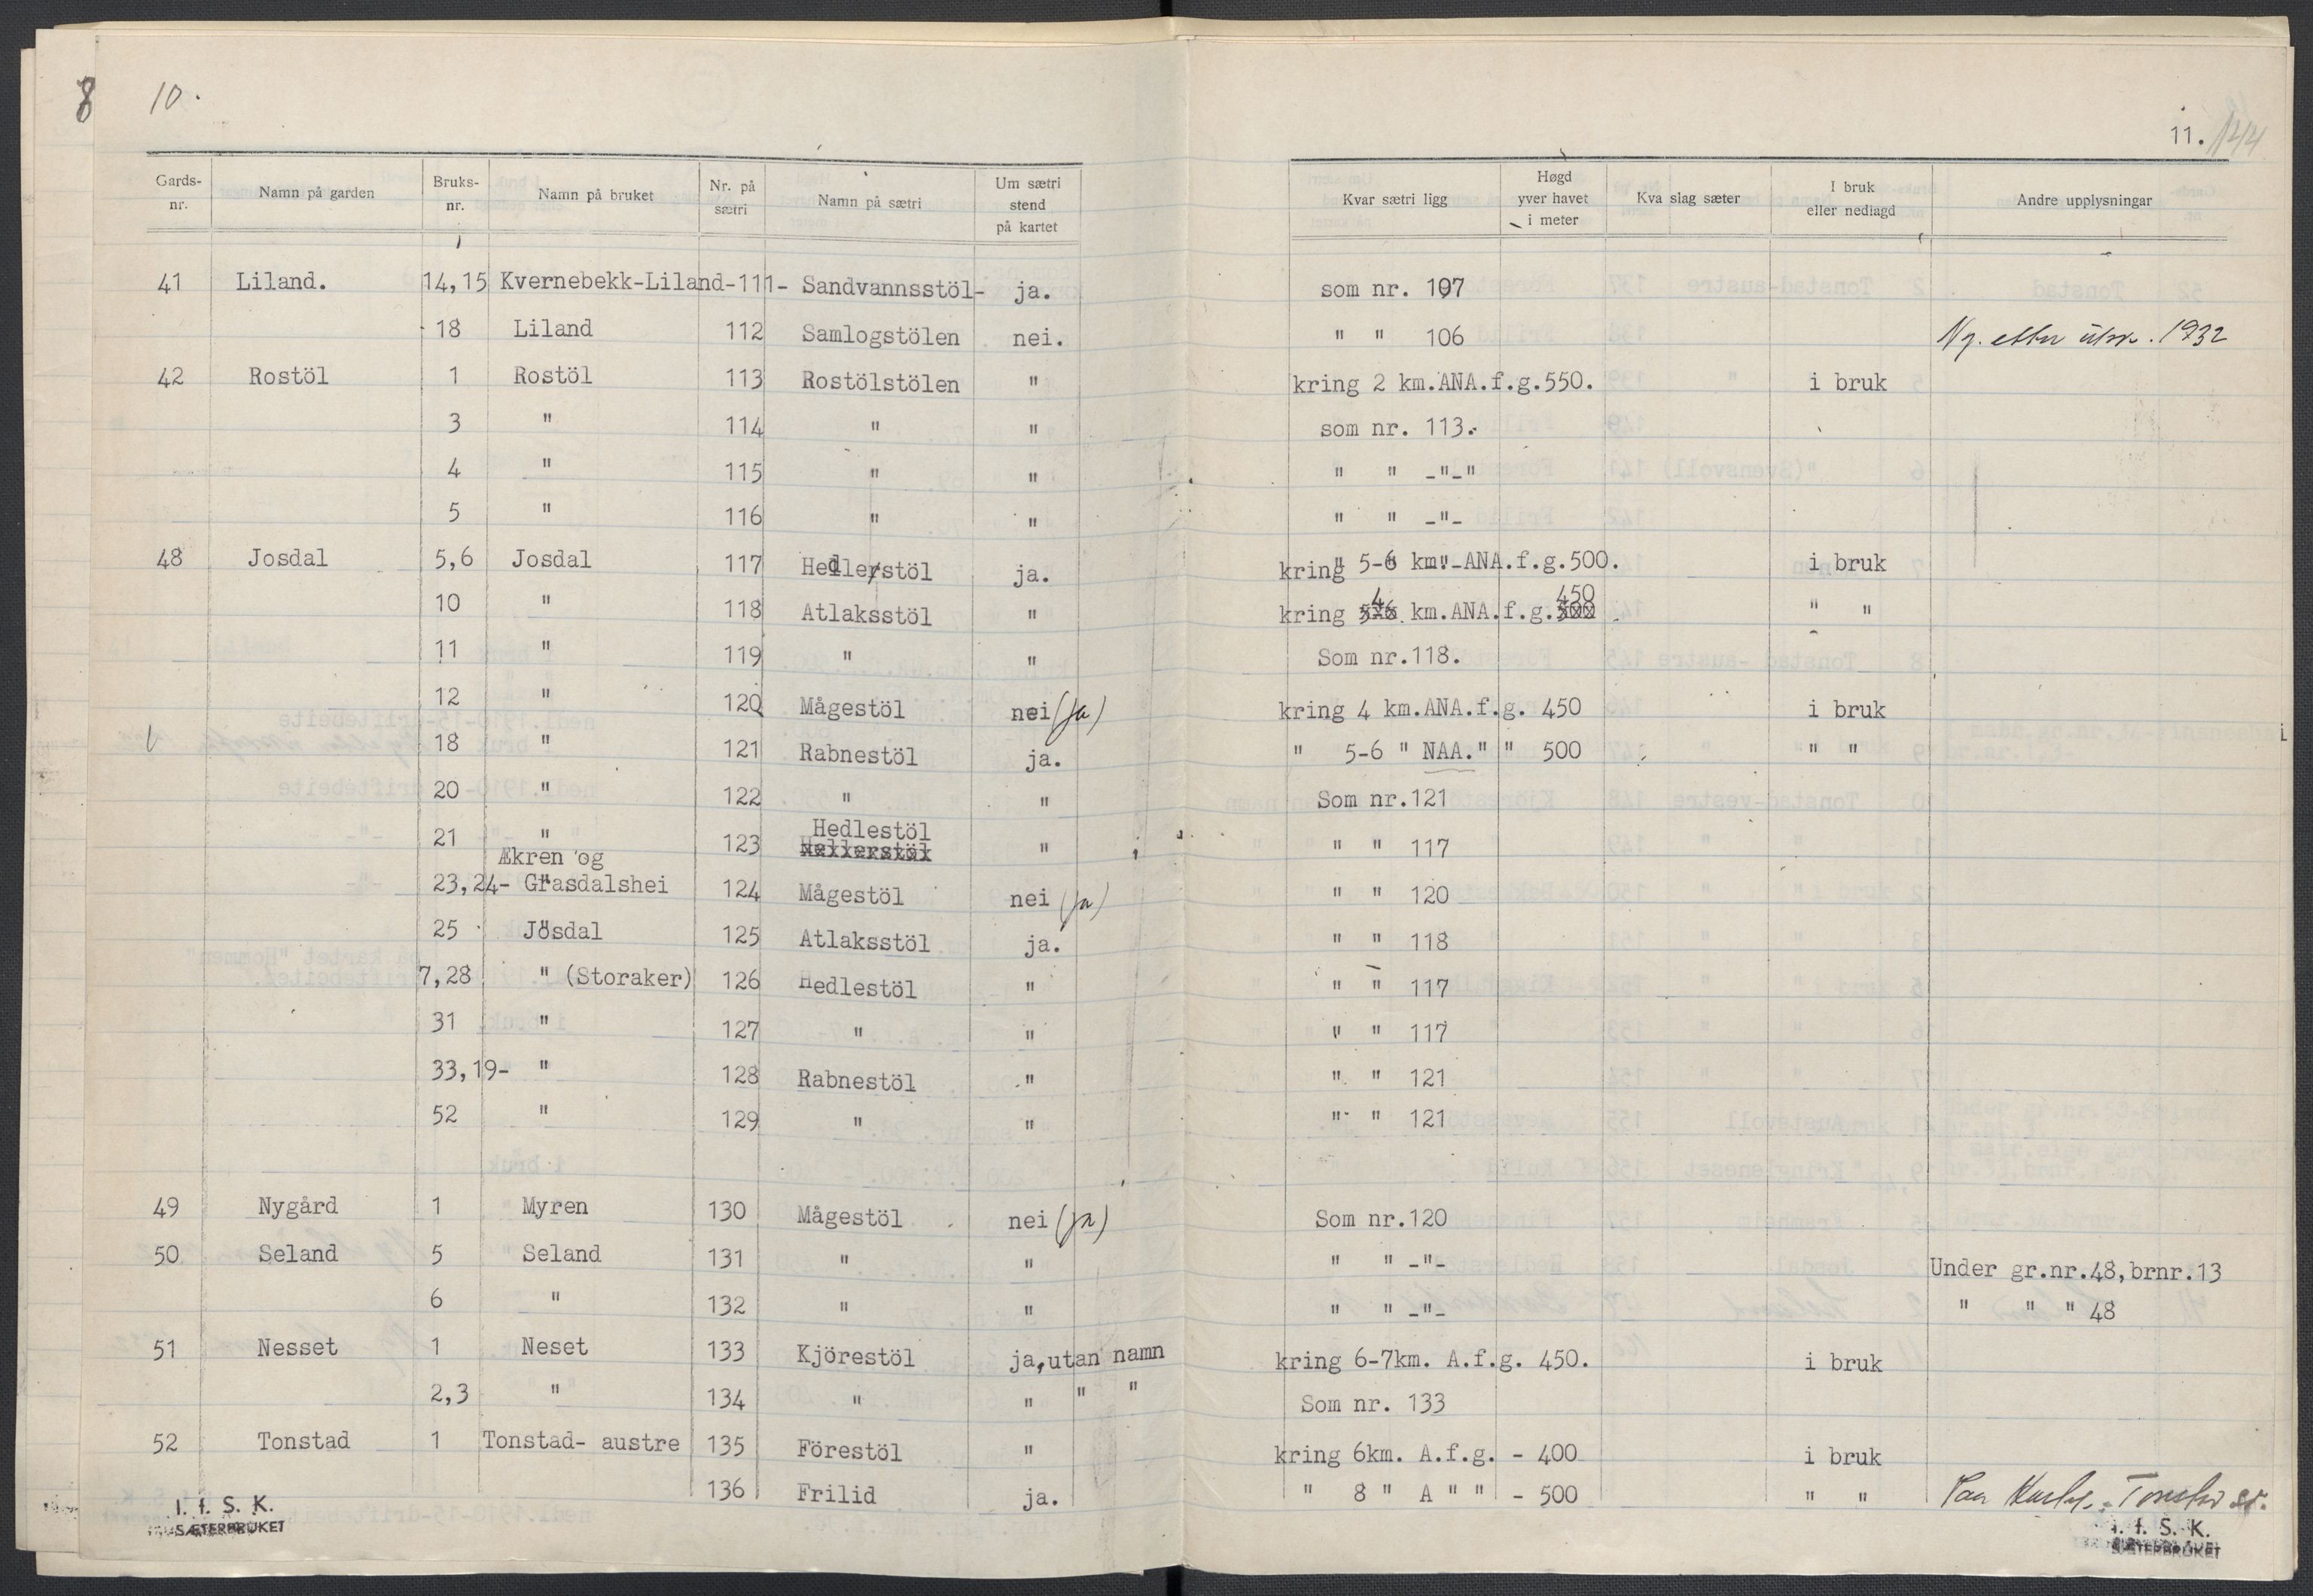 8
10.
11. 144
Gards-nr. Namn på garden Bruks-nr. Namn på bruket Nr. på sætri Namn på sætri Um sætri stend på kartet Kvar sætri ligg Høgd yver havet i meter Kva slag sæter I bruk eller nedlagd Andre upplysningar
41 Liland. 14,15 Kvernebekk-Liland-111- Sandvannsstöl- ja. som nr. 107
18 Liland 112 Samlogstölen nei. " " 106 Ng. etter 1932
42 Rostöl 1 Rostöl 113 Rostölstölen " kring 2 km.ANA.f.g.550. i bruk
3 " 114 " " som nr. 113.
4 " 115 " " " " -"-"
5 " 116 " " " " -"-
48 Josdal 5,6 Josdal 117 Hedlerstöl ja. kring 5-6 km.-ANA.f.g.500. i bruk
4 450
10 " 118 Atlaksstöl " kring 5-6 km.ANA.f.g.500 " "
11 " 119 " " Som nr.118.
12 " 120 Mågestöl nei (ja) kring 4 km.ANA.f.g. 450 i bruk
18 " 121 Rabnestöl ja. " 5-6 " NAA." " 500 " "
20 " 122 " " Som nr.121
Hedlestöl
21 " 123 Hellerstöl " " " 117
Ækren og
23,24- Grasdalshei 124 Mågestöl nei (ja) " " 120
25 Josdal 125 Atlaksstöl ja. " " 118
7,28 " (Storaker) 126 Hedlestöl " " " 117
31 " 127 " " " " 117
33,19- " 128 Rabnestöl " " " 121
52 " 129 " " " " 121
49 Nygård 1 Myren 130 Mågestöl nei (ja) Som nr.120
50 Seland 5 Seland 131 " " " " -"- Under gr.nr.48,brnr.13
6 " 132 " " " " -"- " " " 48
51 Nesset 1 Neset 133 Kjörestöl ja,utan namn kring 6-7km. A.f.g. 450. i bruk
2,3 " 134 " " " " Som nr. 133
52 Tonstad 1 Tonstad- austre 135 Förestöl " kring 6km. A.f.g. - 400 i bruk
136 Frilid ja. " 8 " A " " - 500 " "
I. f. S. K.
SÆTERBRUKET
I. f. S. K.
SÆTERBRUKET